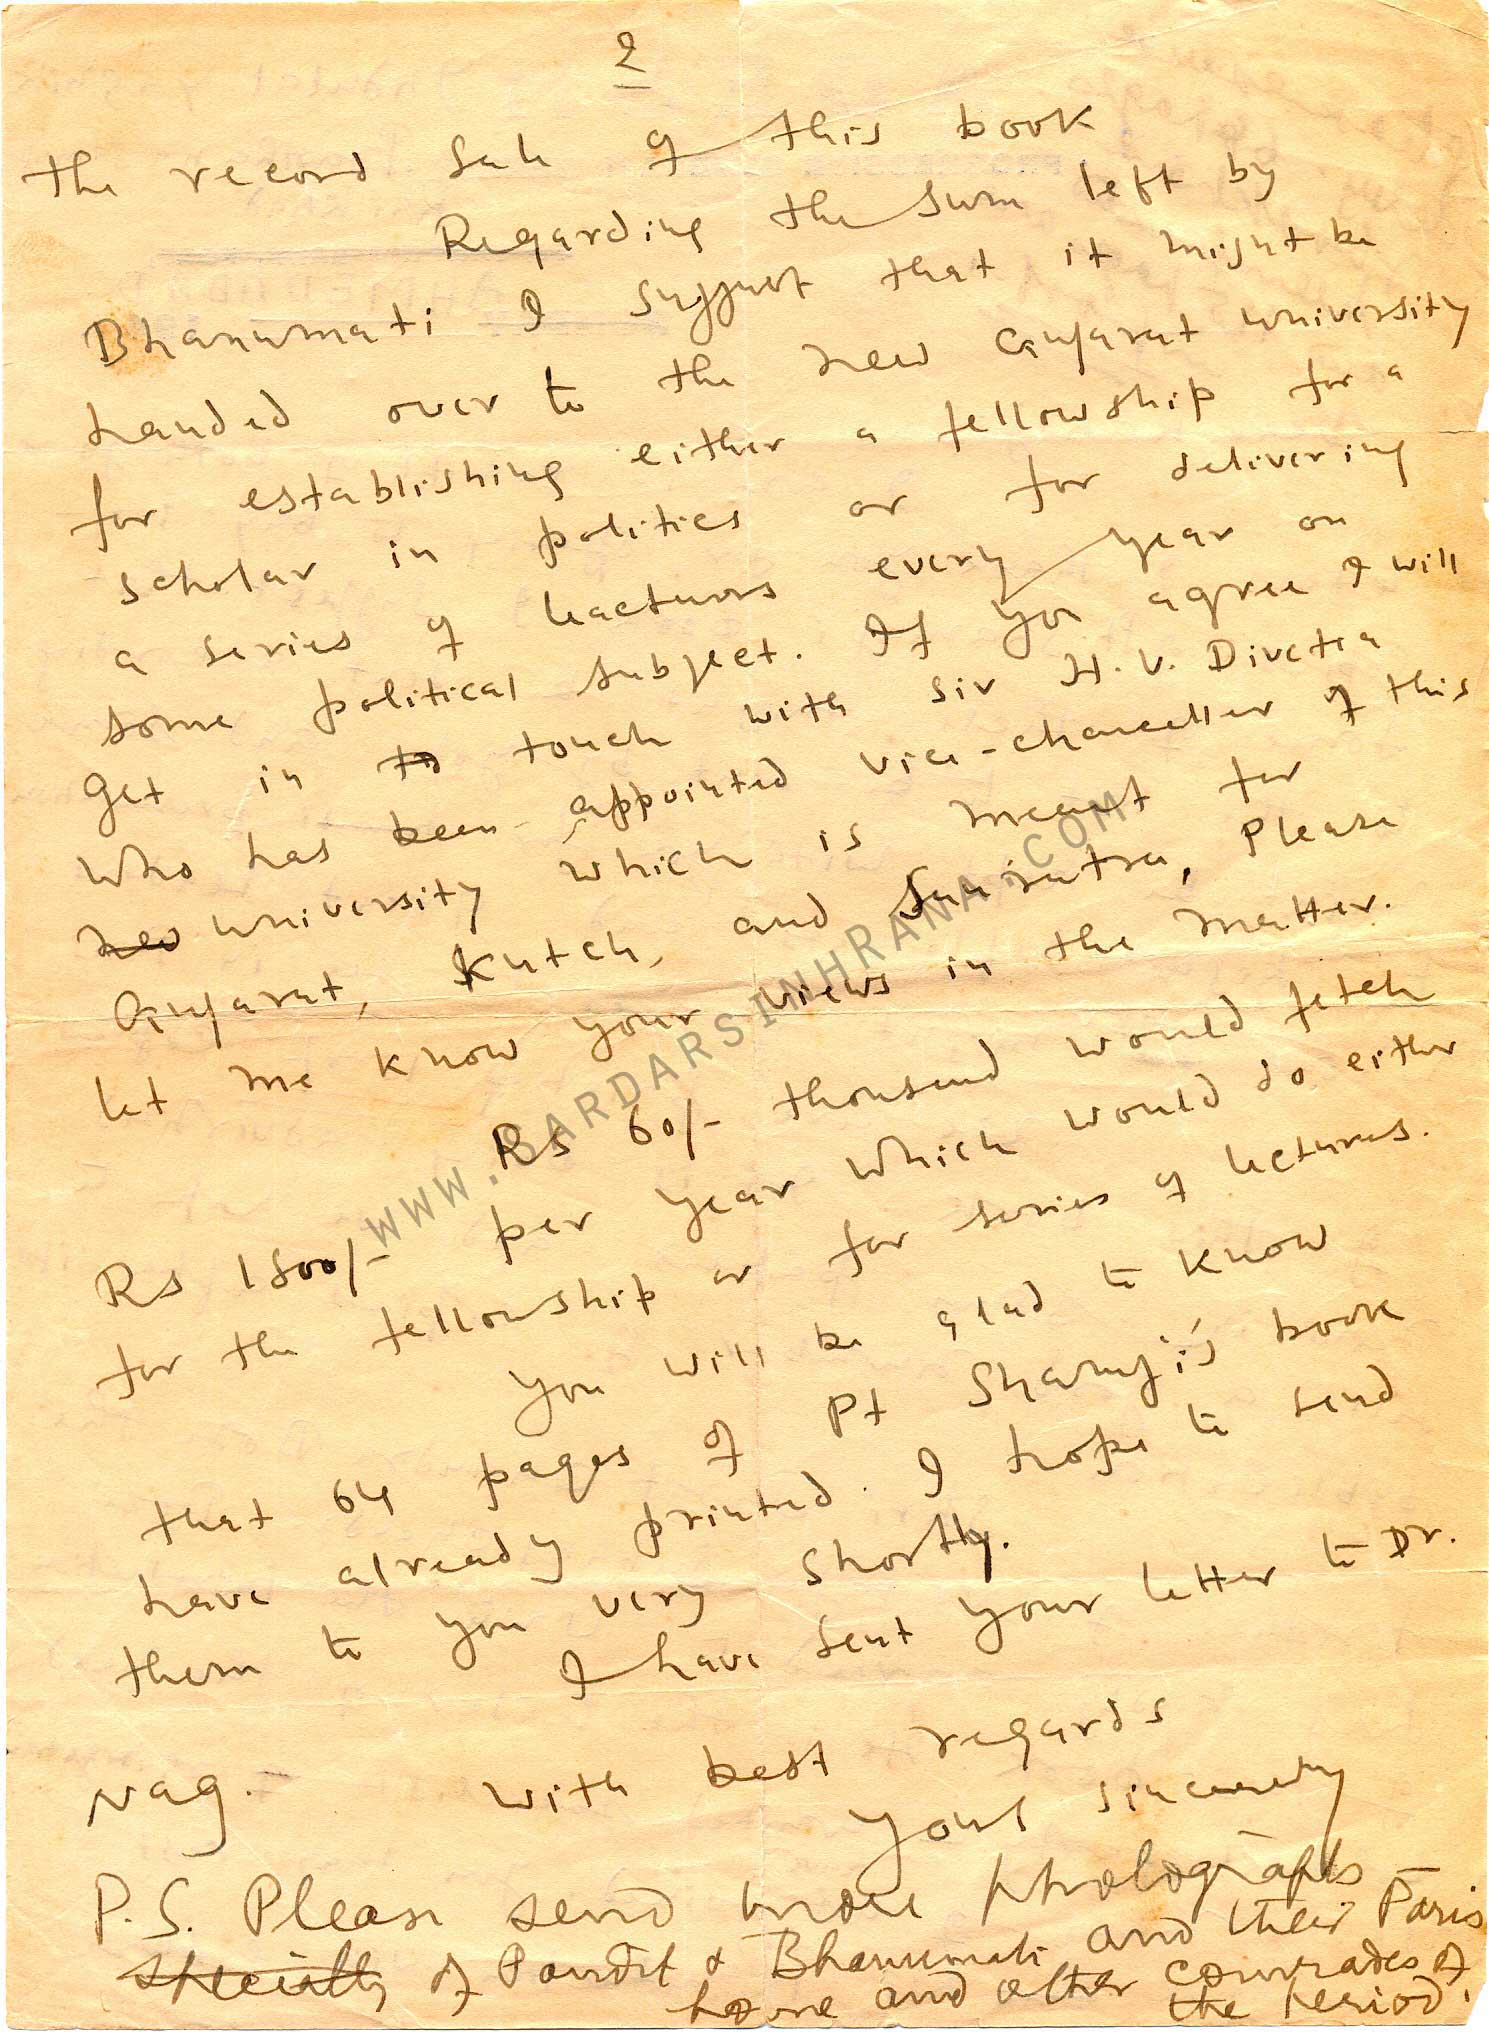 2
the record sale of this book
Regarding the sum left by
Bhanumati I suggest that it might be
handed over to the new Gujarat University
for establishing either a fellowship for a
scholar in politics or for delivering
a series of leactures every year on
some political subject. If you agree I will
get in to touch with Sir H.V. Divetia
who has been appointed vice-chancellor of this
new University which is meant for
Gujarat, Kutch, and Saurastra, Please
let me know your views in the matter.
Rs 60/- thousend would fetch
Rs 1800/- per year which would do either
for the fellowship or for series of lectures.
You will be glad to know
that 64 pages of Pt Shamji's book
have already printed. I hope to send
them to you very shortly.
I have sent your letter to Dr.
Nag. with best regards
Yours sincerely
P.S. Please send more photographs
specially of Pandit & Bhanumati and their Paris
home and other comrades of
the period.
WWW.SARDARSINHRANA.COM